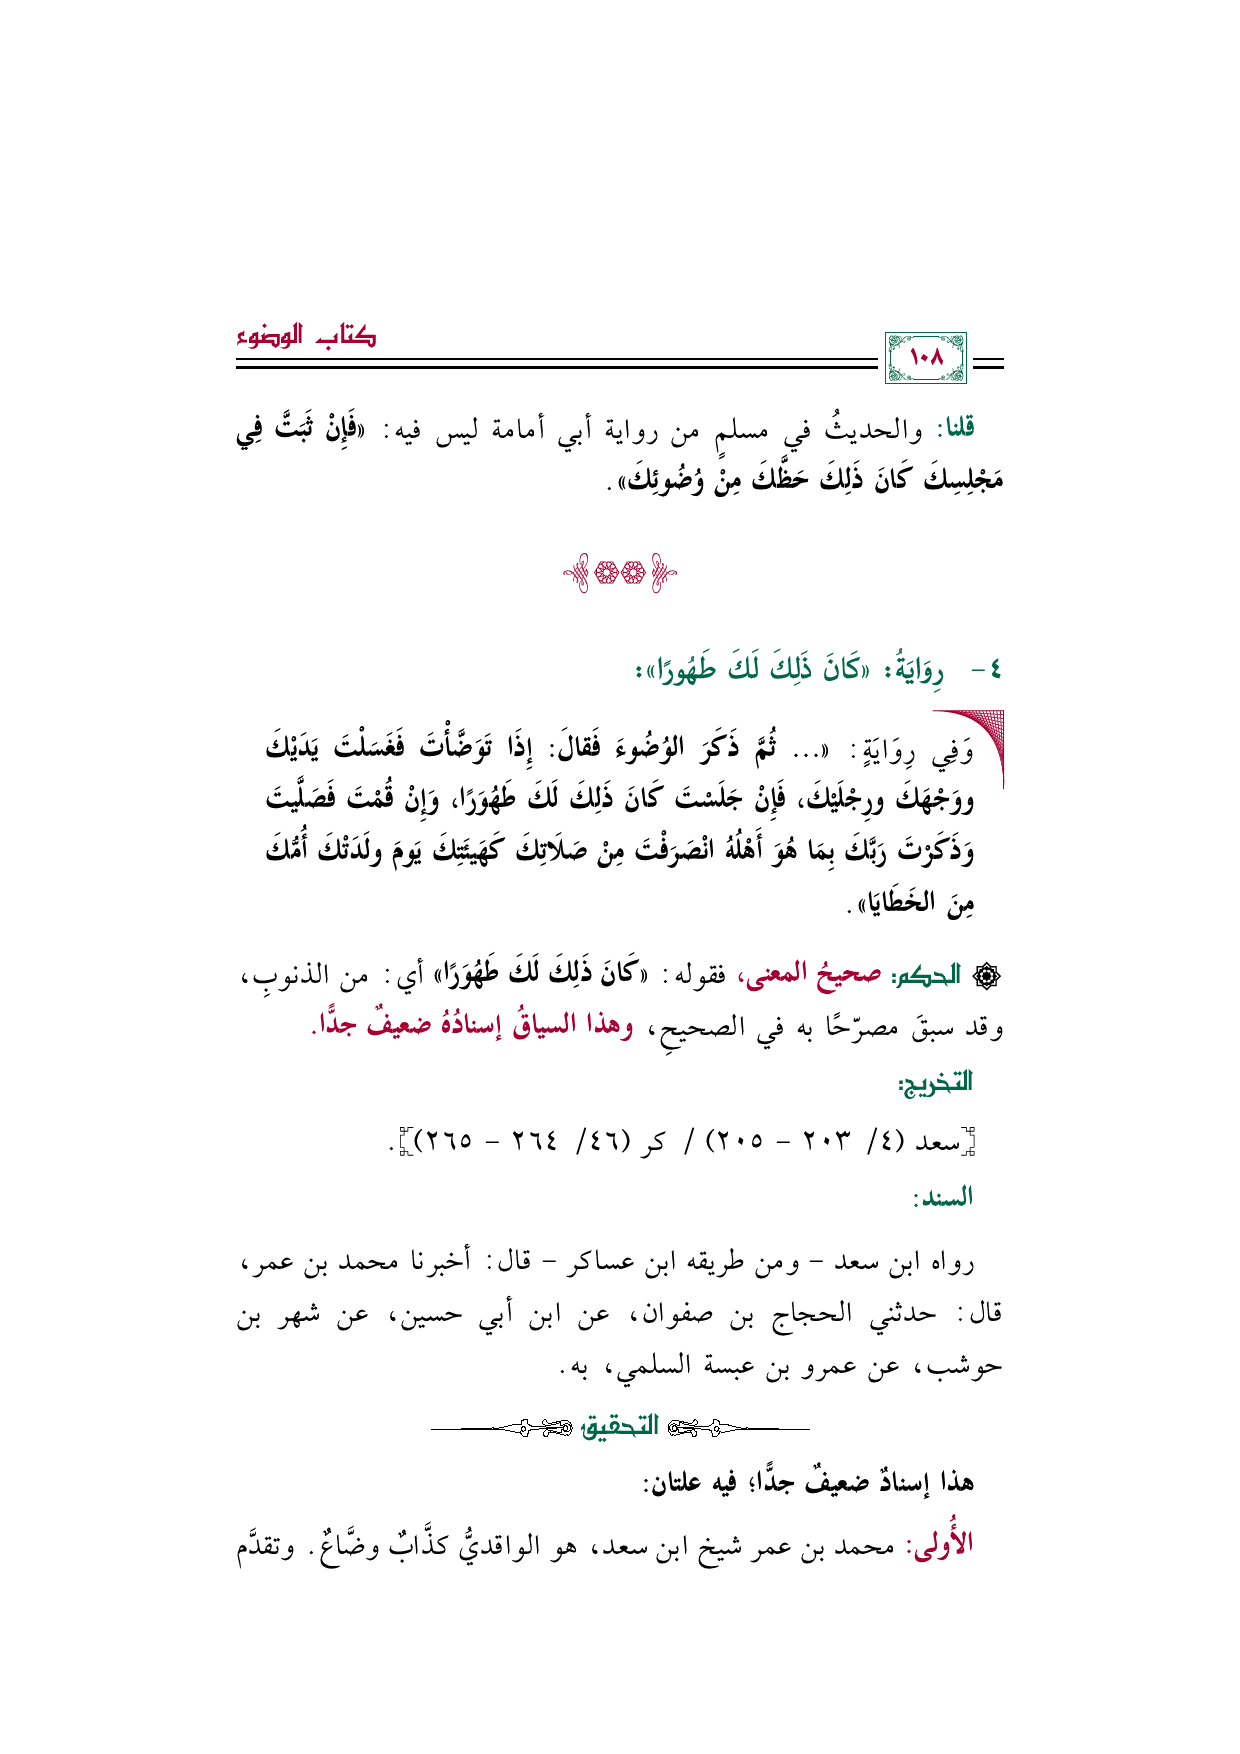 كتاب الوضوء
١٠٨
قلنا: والحديثُ في مسلمٍ من رواية أبي أمامة ليس فيه: «فَإِنْ ثَبَتَّ فِي
مَجْلِسِكَ كَانَ ذَلِكَ حَظَّكَ مِنْ وُضُوئِكَ».
٤- رِوَايَةُ: «كَانَ ذَلِكَ لَكَ طَهُورًا»:
وَفِي رِوَايَةٍ: «... ثُمَّ ذَكَرَ الوُضُوءَ فَقالَ: إِذَا تَوَضَّأْتَ فَغَسَلْتَ يَدَيْكَ
ووَجْهَكَ ورِجْلَيْكَ، فَإِنْ جَلَسْتَ كَانَ ذَلِكَ لَكَ طَهُوَرًا، وَإِنْ قُمْتَ فَصَلَّيتَ
وَذَكَرْتَ رَبَّكَ بِمَا هُوَ أَهْلُهُ انْصَرَفْتَ مِنْ صَلَاتِكَ كَهَيئَتِكَ يَومَ ولَدَتْكَ أُمُّكَ
مِنَ الخَطَايَا».
الحكم: صحيحُ المعنى، فقوله: «كَانَ ذَلِكَ لَكَ طَهُوَرًا» أي: من الذنوبِ،
وقد سبقَ مصرّحًا به في الصحيحِ، وهذا السياقُ إسنادُهُ ضعيفٌ جدًّا.
التخريج:
[سعد (٤/ ٢٠٣ - ٢٠٥) / كر (٤٦/ ٢٦٤ - ٢٦٥)].
السند:
رواه ابن سعد - ومن طريقه ابن عساكر - قال: أخبرنا محمد بن عمر،
قال: حدثني الحجاج بن صفوان، عن ابن أبي حسين، عن شهر بن
حوشب، عن عمرو بن عبسة السلمي، به.
التحقيق
هذا إسنادٌ ضعيفٌ جدًّا؛ فيه علتان:
الأُولى: محمد بن عمر شيخ ابن سعد، هو الواقديُّ كذَّابٌ وضَّاعٌ. وتقدَّم